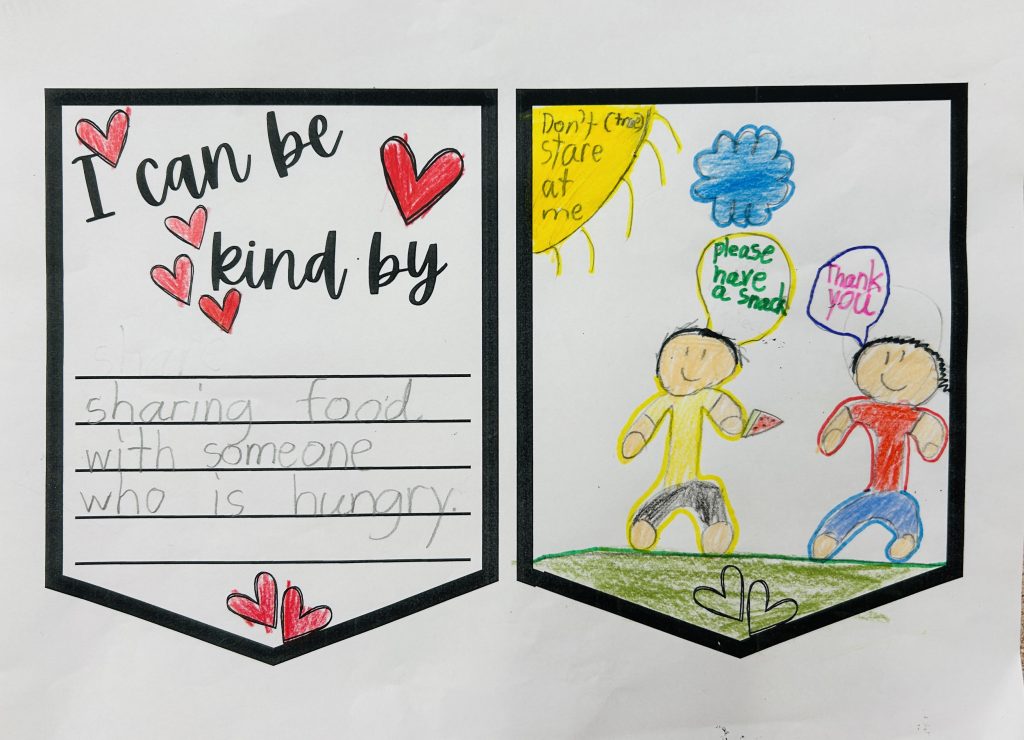 I can be
kind by
sharing food.
with someone
who is hungry.
Don't (true)
stare
at
me
please
have
a snack
Thank
you